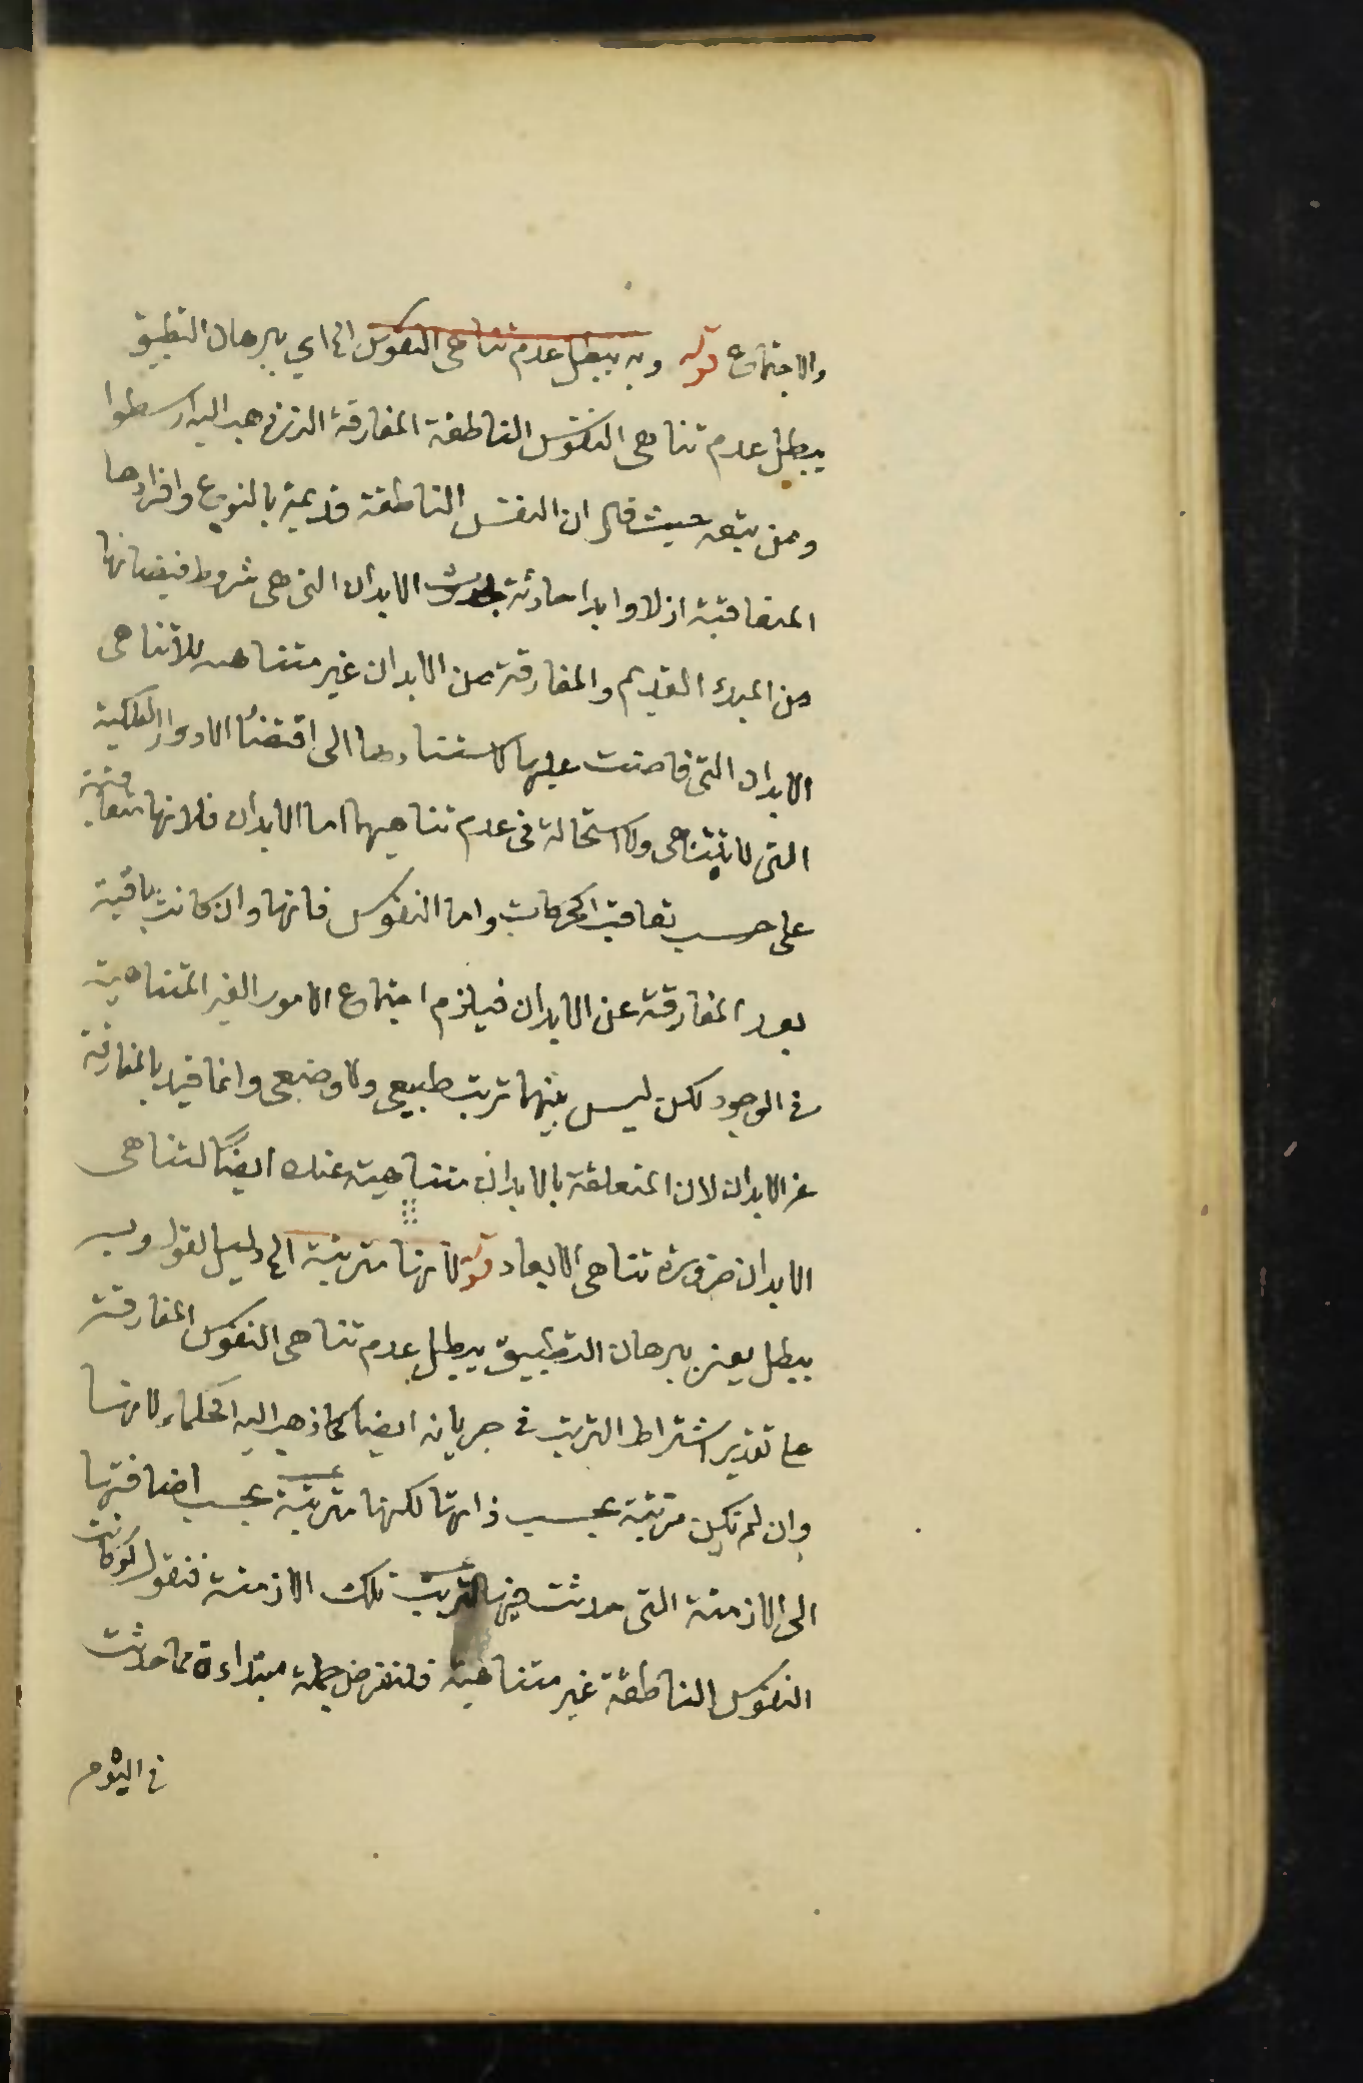 والاجتماع قوله وبه يبطل عدم تناهى النفوس الخ اي ببرهان التطبيق
يبطل عدم تناهى النفوس الناطقة المفارقة الذى ذهب اليه ارسطوا
ومن تبعه حيث قال ان النفس الناطقة قديمة بالنوع وافرادها
المتعاقبة ازلا وابدا حادثة بحدوث الابدان التى هى شروط فيضانها
من المبدء القديم والمفارقة من الابدان غير متناهيه للاتناهى
الابدان التى فاضت عليها لاستنادها الى اقتضاء الادوار الفلكية
التى لا تتناهى ولا استحالة فى عدم تناهيهما اما الابدان فلانها متعاقبة
على حسب تعاقب الحركات واما النفوس فانها وان كانت باقية
بعد المفارقة عن الابدان فيلزم اجتماع الامور الغير المتناهية
فى الوجود لكن ليس بينها ترتب طبيعى ولا وضعى وانما قيد بالمفارقة
عن الابدان لان المتعلقة بالابدان متناهية عنده ايضًا لتناهى
الابدان ضرورة تناهى الابعاد قوله لانها مترتبة الخ دليل لقوله وبه
يبطل يعنى ببرهان التطبيق يبطل عدم تناهى النفوس المفارقة
على تقدير اشتراط الترتب فى جريانه ايضا كما ذهب اليه الحكماء لانها
وان لم تكن مرتبة بحسب ذاتها لكنها مترتبة بحسب اضافتها
الى الازمنة التى حدثت فيها لترتب تلك الازمنة فنقول لو كانت
النفوس الناطقة غير متناهية فلنفرض جملة مبتداءة مما حدثت
فى اليوم